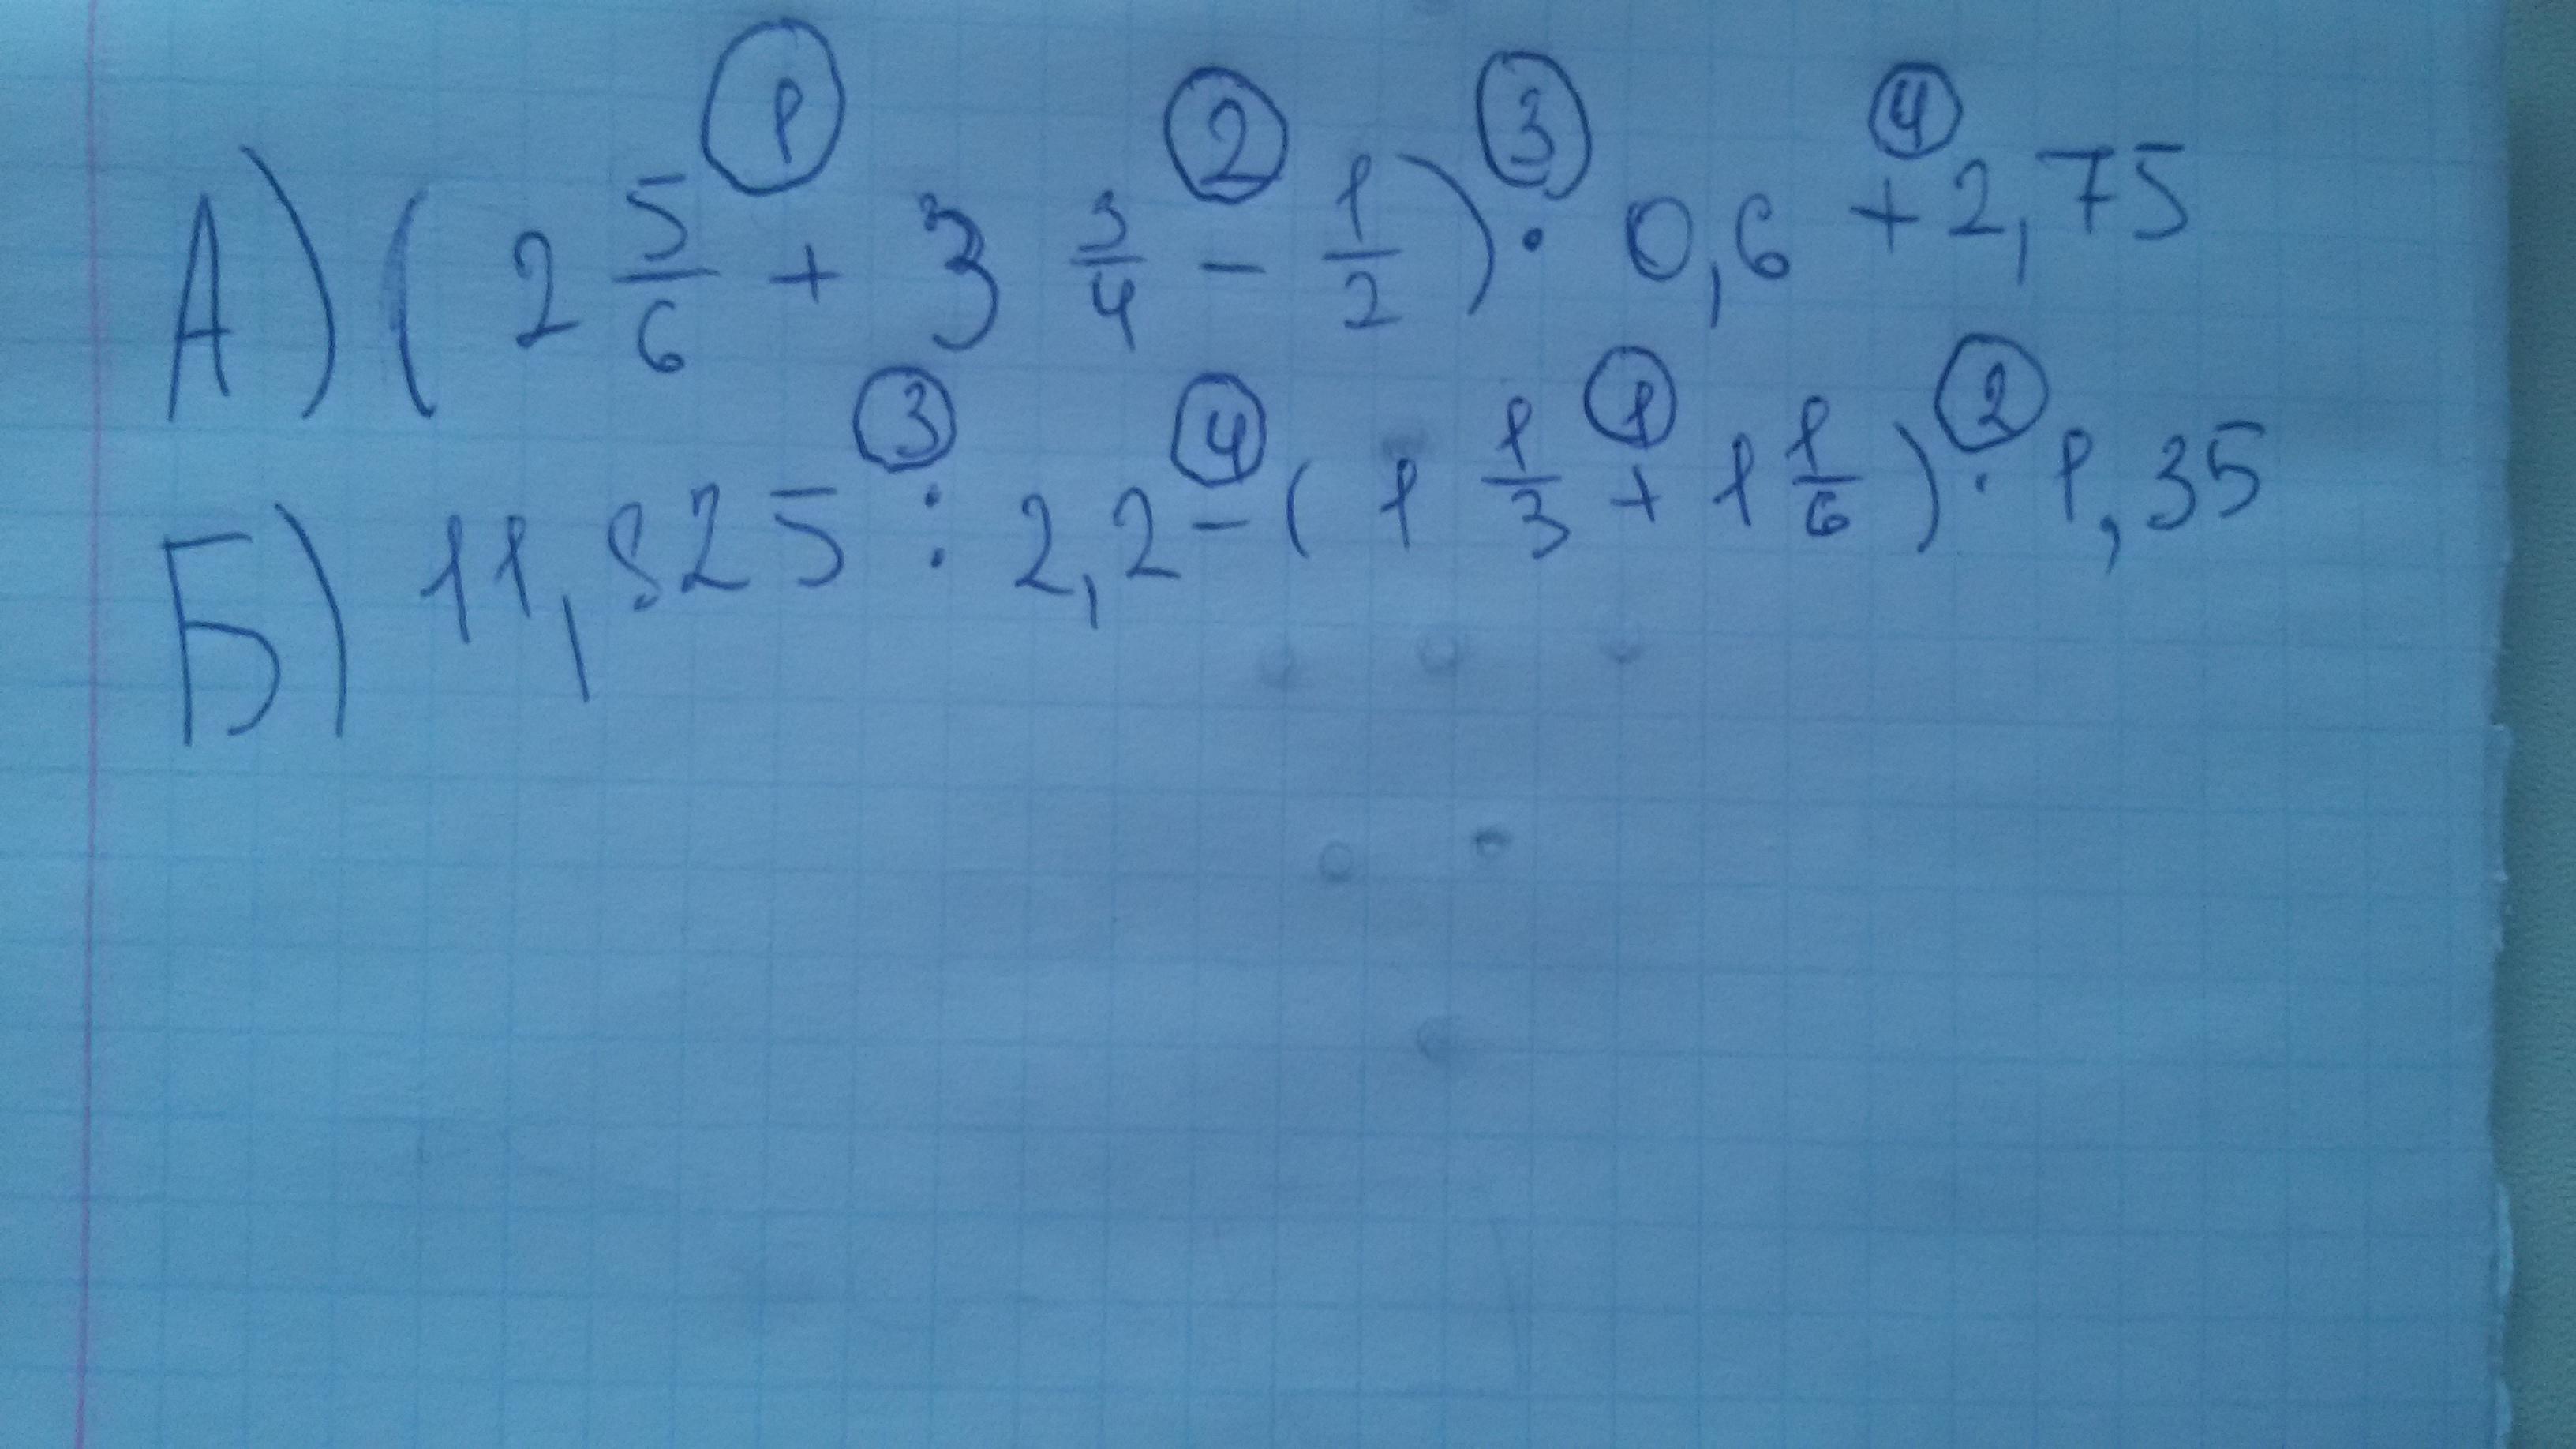 А) ( 2 5/6 ① + 3 3/4 ② - 1/2 ) ③ · 0,6 ④ + 2,75
Б) 11,825 ③ : 2,2 ④ - ( 1 1/3 ① + 1 1/6 ) ② · 1,35